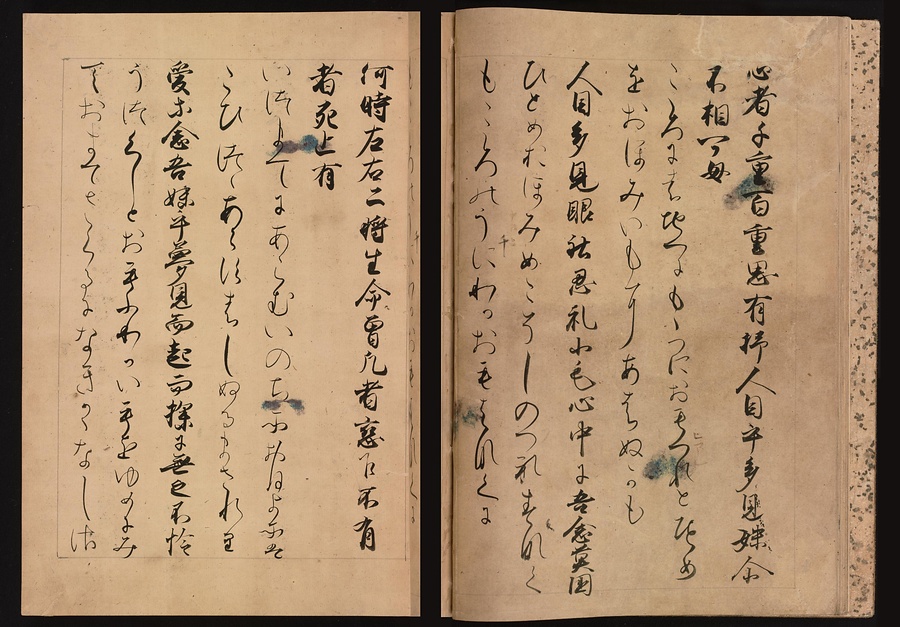 心者千重百重思有杼人目乎多見妹尓
不相可母
こゝろにはちへにもゝへにおもへれとひとめ
をおほみいもにあはぬかも
人目多見眼社忍礼小毛心中尓吾念莫国
ひとめおほみめこそしのふれすくなく
もこゝろのうちにわかおもはなくに
何時左右二将生命曽凡者恋乍不有
者死上有
いつまてにあらむいのちそおほよそは
こひつゝあらすはしぬるまされり
愛等念吾妹乎夢見而起而探尓無之不怜
うつくしとおもふわかいもをゆめにみ
ておきてさくるになきかなしさ